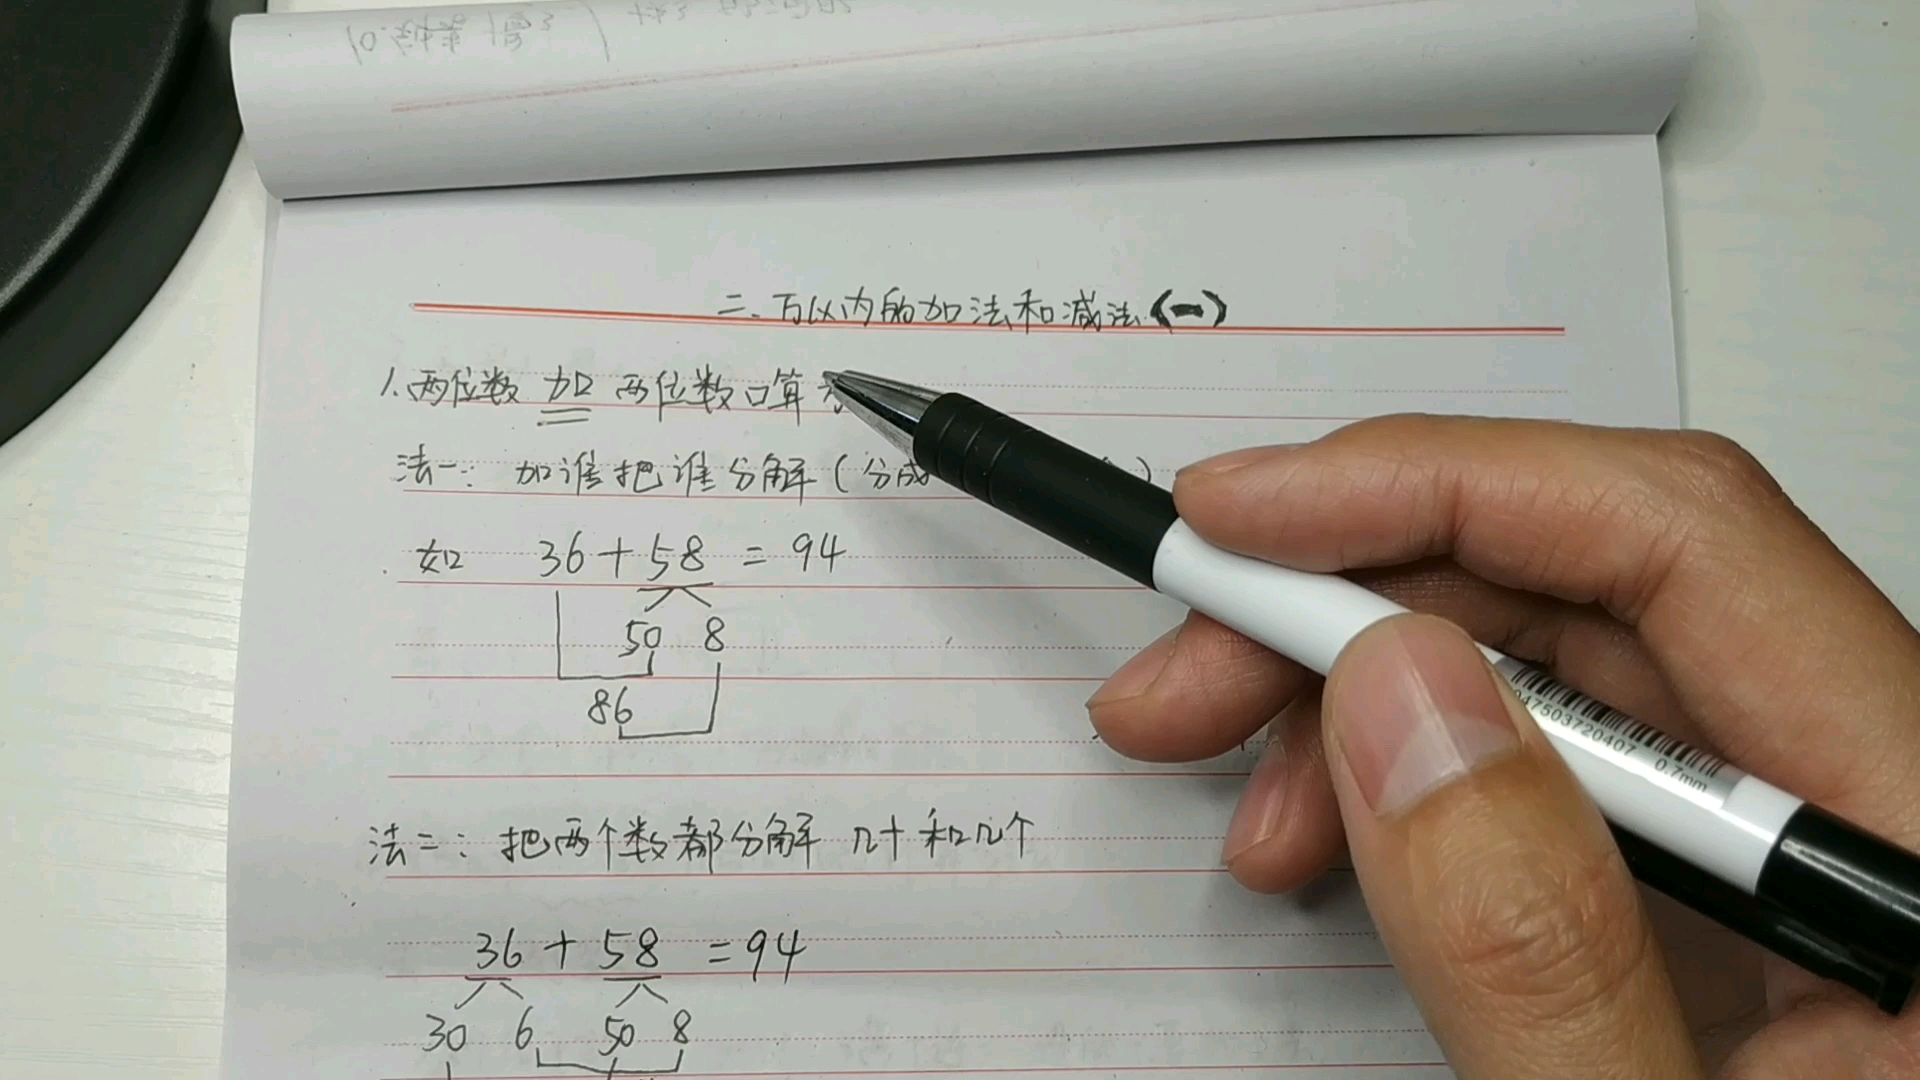 二、万以内的加法和减法(一)
1.两位数 加 两位数口算
法一: 加谁把谁分解(分成
如 36+58 = 94
50 8
86
法二: 把两个数都分解 几十和几个
36 + 58 = 94
30 6 50 8
947503720407
0.7mm